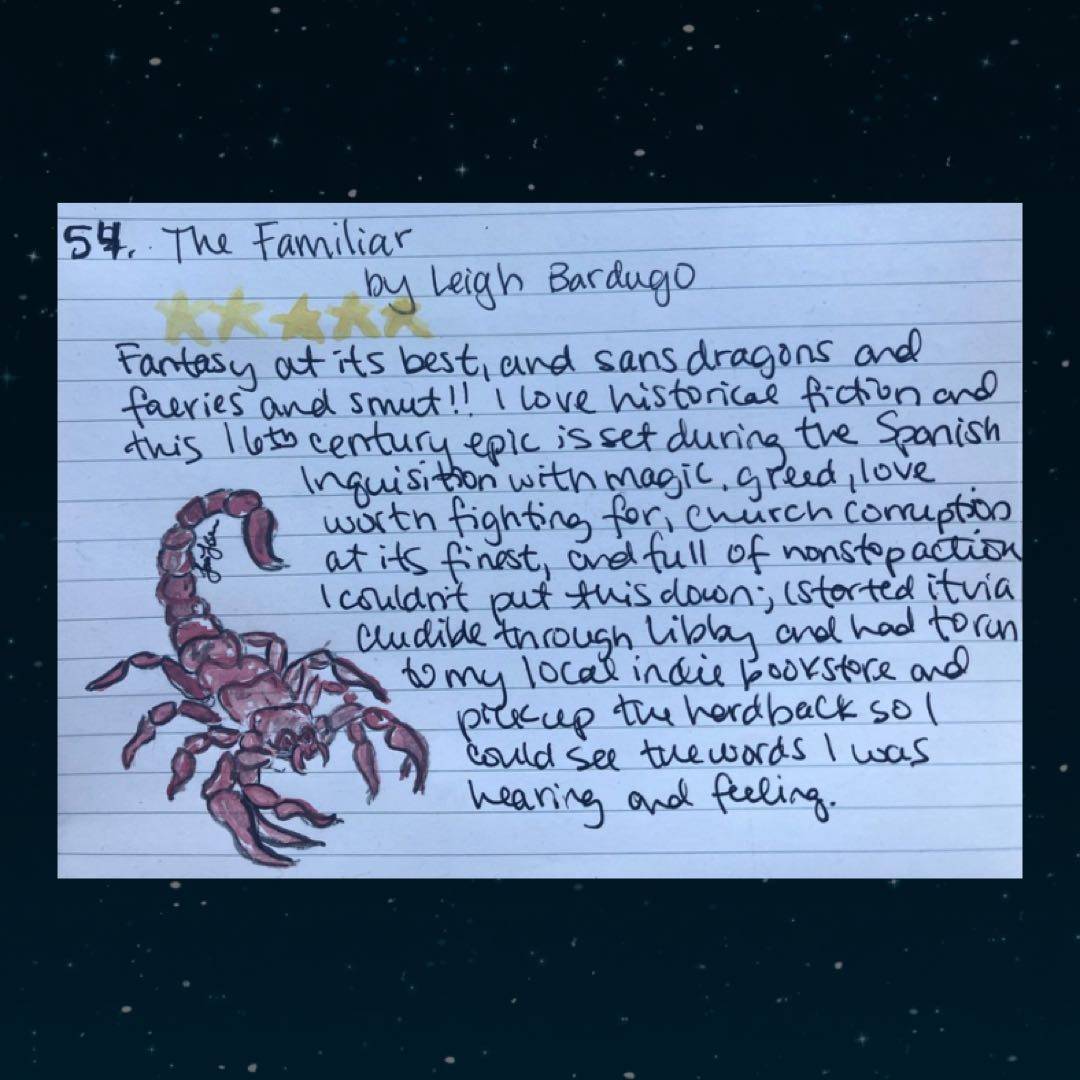 54. The Familiar
by Leigh Bardugo
Fantasy at its best, and sans dragons and
faeries and smut!! I love historical fiction and
this 16th century epic is set during the Spanish
Inquisition with magic, greed, love
worth fighting for, church corruption
at its finest, and full of nonstop action
I couldn't put this down; I started it via
audible through libby and had to run
to my local indie bookstore and
pick up the hardback so I
could see the words I was
hearing and feeling.